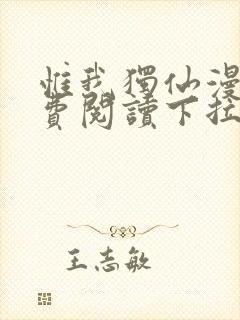 惟我獨仙漫
費閱讀下拉
王志敏